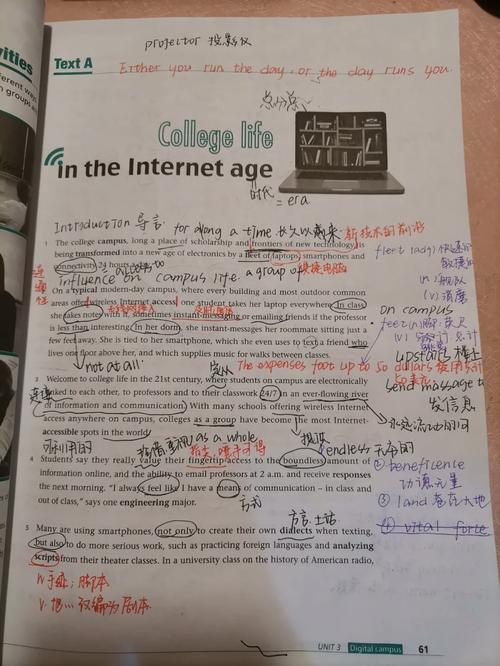 vities
fferent ways
n groups an
projector 投影仪
Text A
Either you run the day, or the day runs you.
College life
in the Internet age
时代 = era
Introduction 导言 for along a time
1 The college campus, long a place of scholarship and frontiers of new technology, is
being transformed into a new age of electronics by a fleet of laptops, smartphones and
connectivity 24 hours a day.
influence on campus life. a group of 便携电脑
2 On a typical modern-day campus, where every building and most outdoor common
areas offer wireless Internet access, one student takes her laptop everywhere. In class,
she takes notes, sometimes instant-messaging or emailing friends if the professor
is less than interesting. In her dorm, she instant-messages her roommate sitting just a
few feet away. She is tied to her smartphone, which she even uses to text a friend who
lives one floor above her, and which supplies music for walks between classes.
fleet (adj) 快速的
敏捷的
(n) 舰队
on campus
upstairs 楼上
send message to
发信息
not at all
The expenses foot up to 50 dollars
3 Welcome to college life in the 21st century, where students on campus are electronically
linked to each other, to professors and to their classwork 24/7 in an ever-flowing river
of information and communication. With many schools offering wireless Internet
access anywhere on campus, colleges as a group have become the most Internet-
accessible spots in the world.
可利用的
as a whole
endless 无序的
4 Students say they really value their fingertip access to the boundless amount of
information online, and the ability to email professors at 2 a.m. and receive responses
the next morning. "I always feel like I have a means of communication – in class and
out of class," says one engineering major.
方式
① beneficence
③ land
④ vital force
方言
5 Many are using smartphones, not only to create their own dialects when texting,
but also to do more serious work, such as practicing foreign languages and analyzing
scripts from their theater classes. In a university class on the history of American radio,
n 手迹；脚本
v. 把…改编为剧本
UNIT 3 Digital campus 61